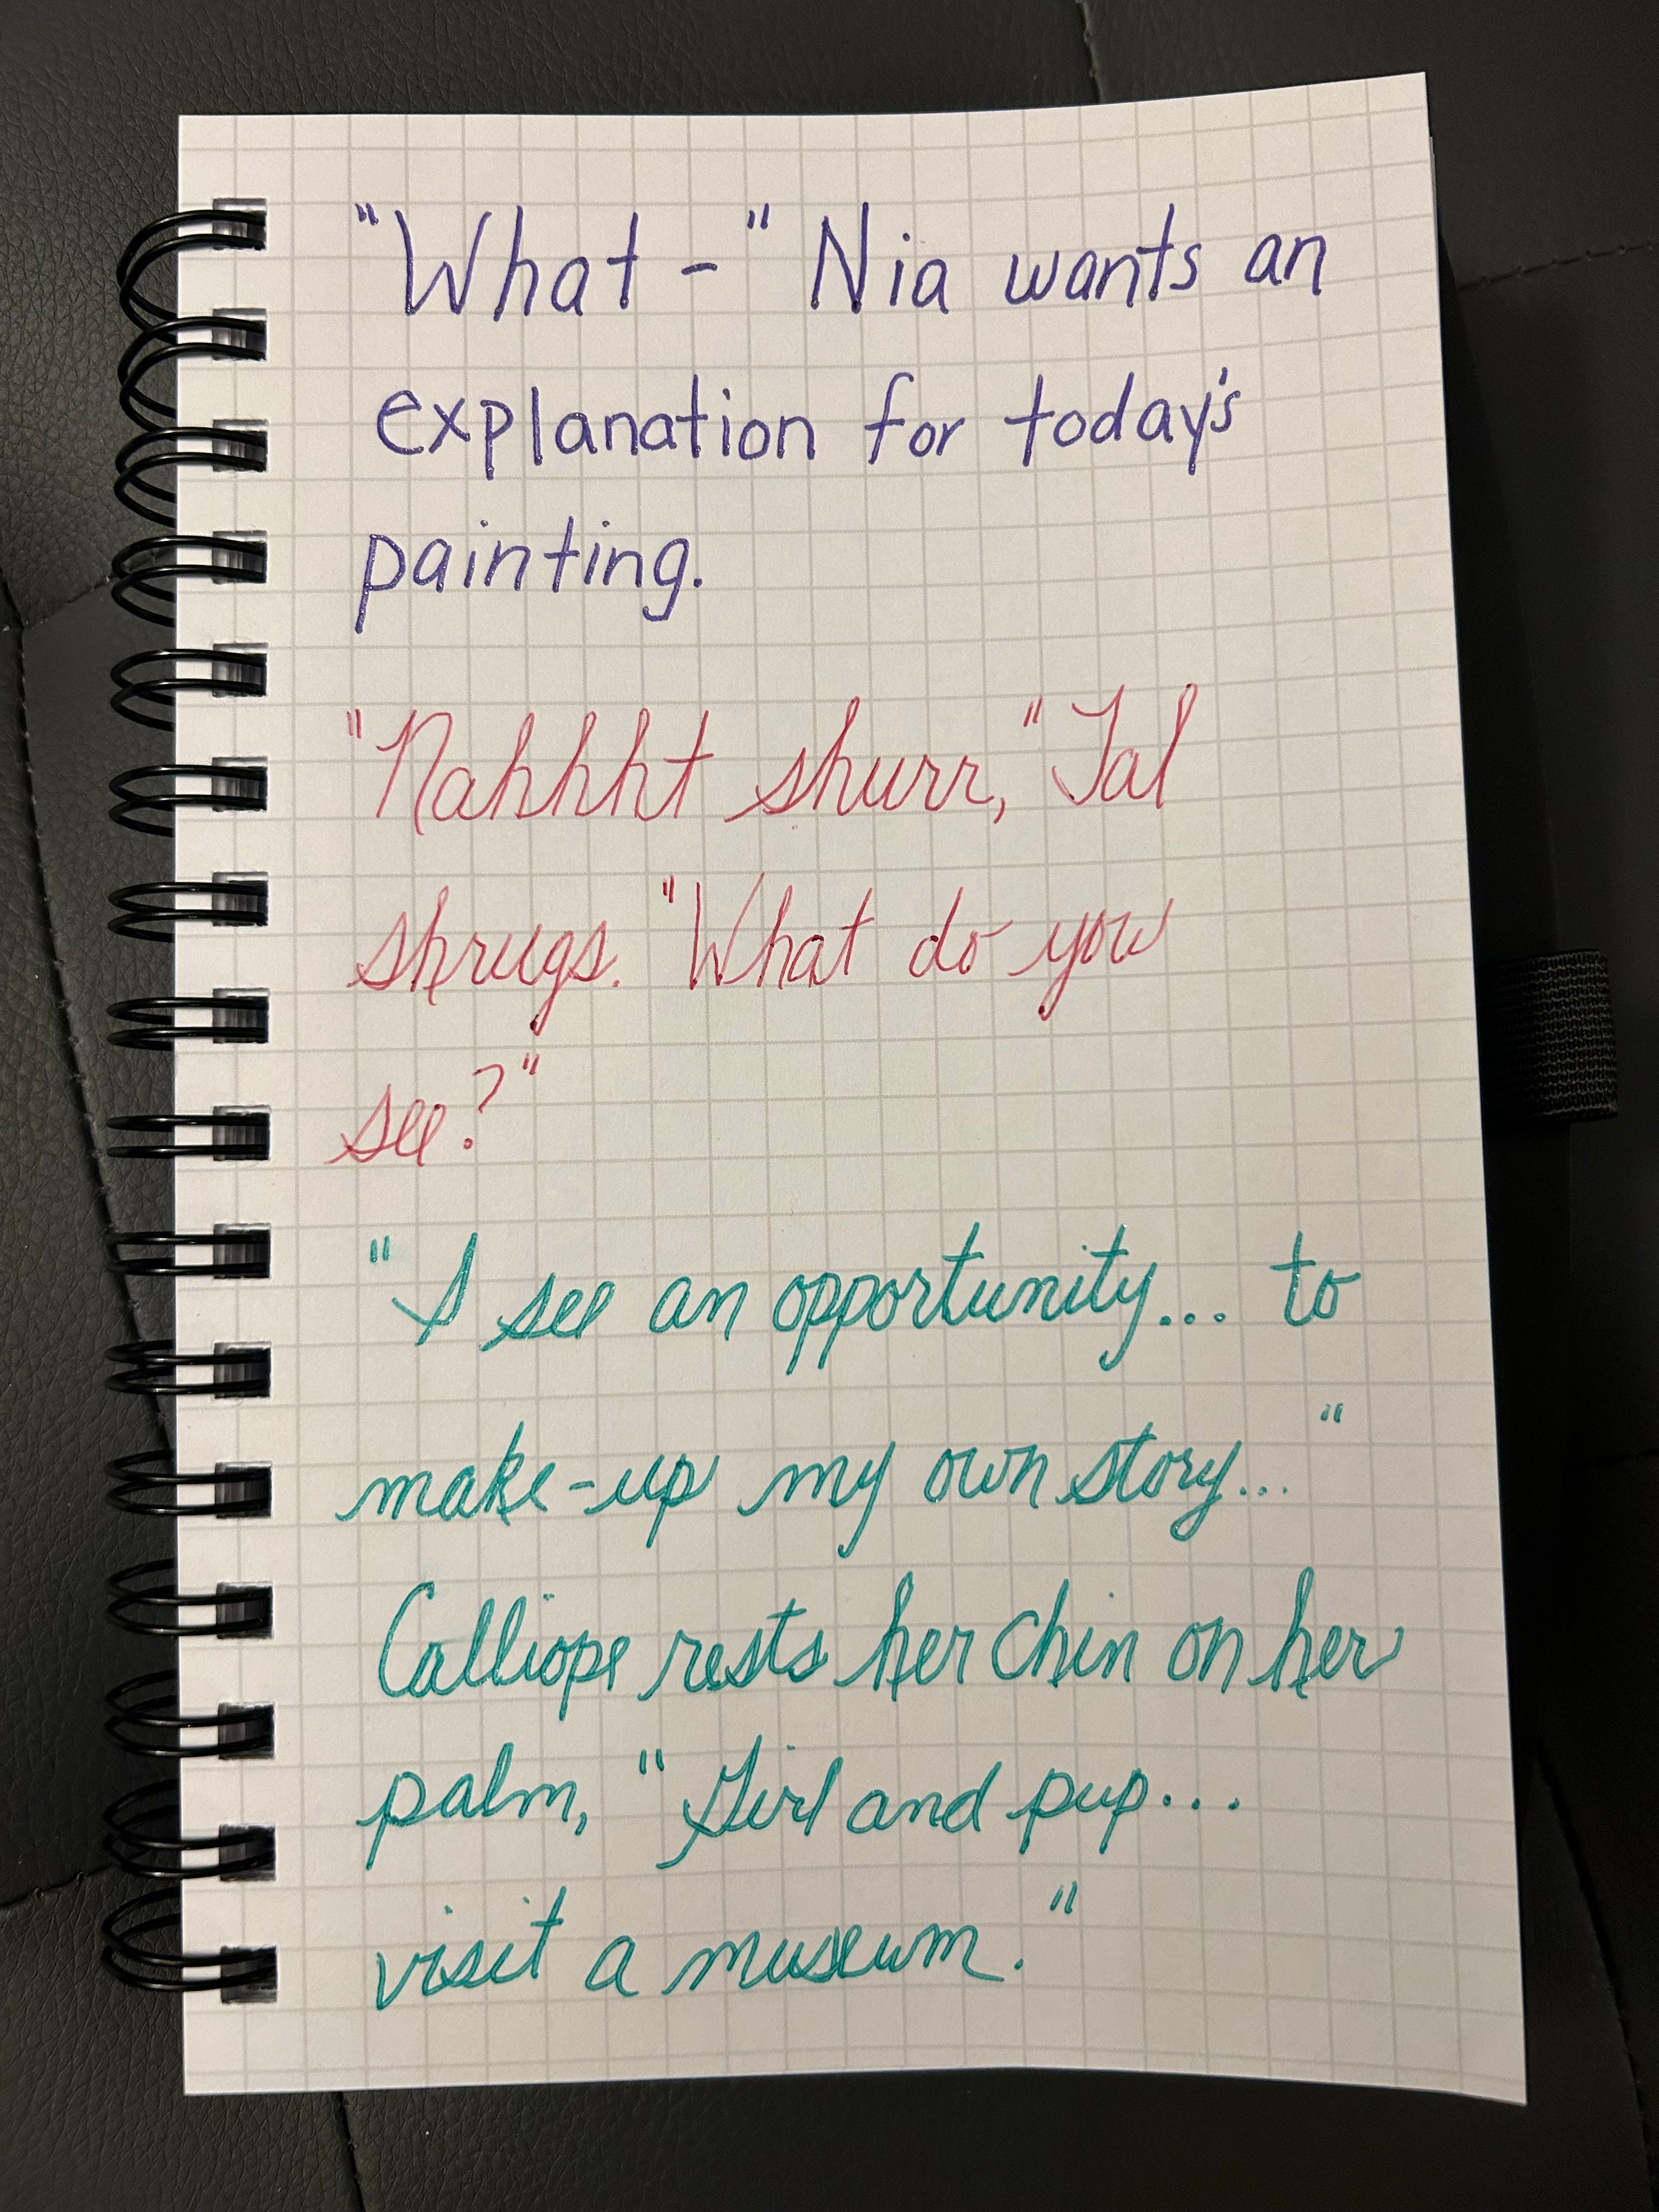 "What - " Nia wants an
explanation for today's
painting.
"Nahhht shurr," Tal
shrugs. "What do you
see?"
"I see an opportunity... to
make-up my own story..."
Calliope rests her chin on her
palm, "Girl and pup...
visit a museum."